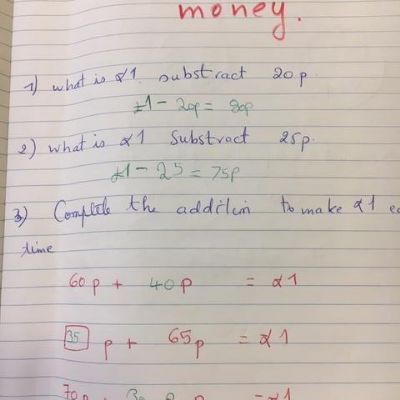 money.
1) what is £1 substract 20p
£1 - 20p = 80p
2) what is £1 Substract 25p.
£1 - 25 = 75p
3) Complete the addition to make £1
time
60p + 40p = £1
35 p + 65p = £1
70p + 30 = £1